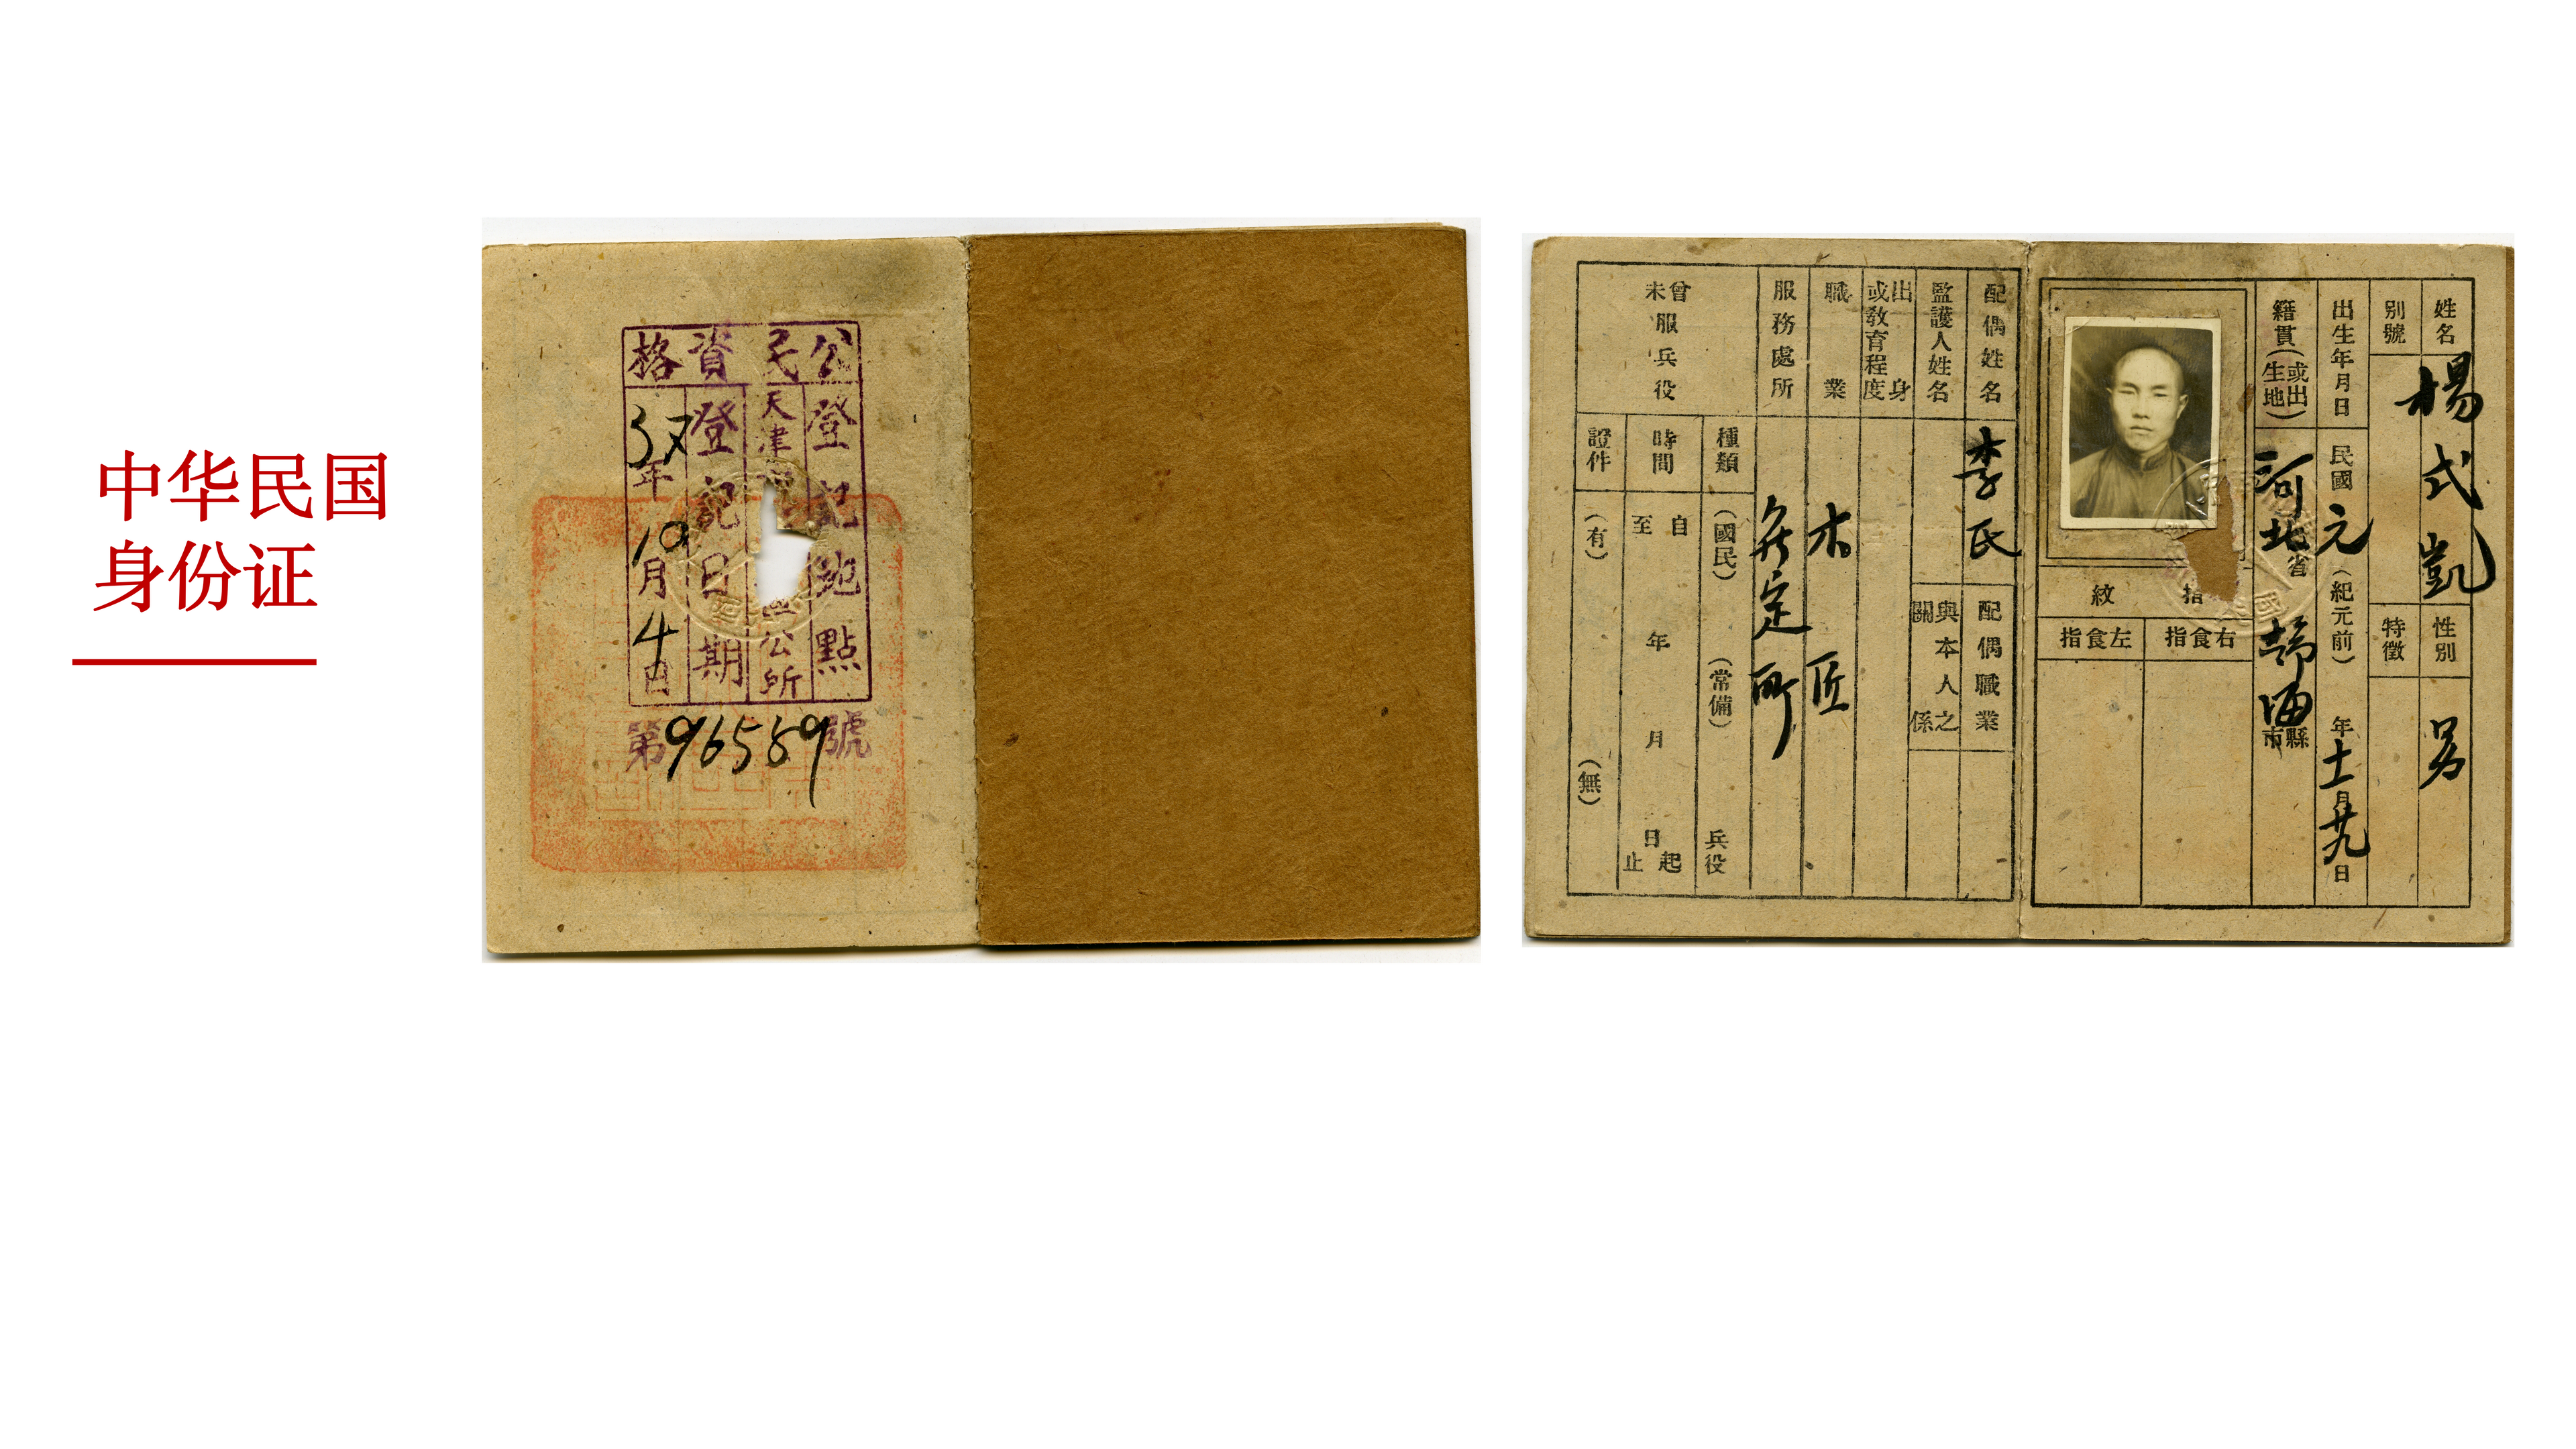 中华民国
身份证
公民資格
登記地點
天津
公所
登記日期
37年10月4日
第96589號
姓名
楊式凱
性別
男
別號
特徵
出生年月日
民國元(紀元前)年十一月廿九日
籍貫(或出生地)
河北省
靜海市縣
指紋
右食指
左食指
配偶姓名
李氏
配偶職業
監護人姓名
與本人之關係
出身或教育程度
職業
木匠
服務處所
無定所
曾未服兵役
種類
(國民)
(常備)
兵役
時間
自
至
年
月
日
起
止
證件
(有)
(無)